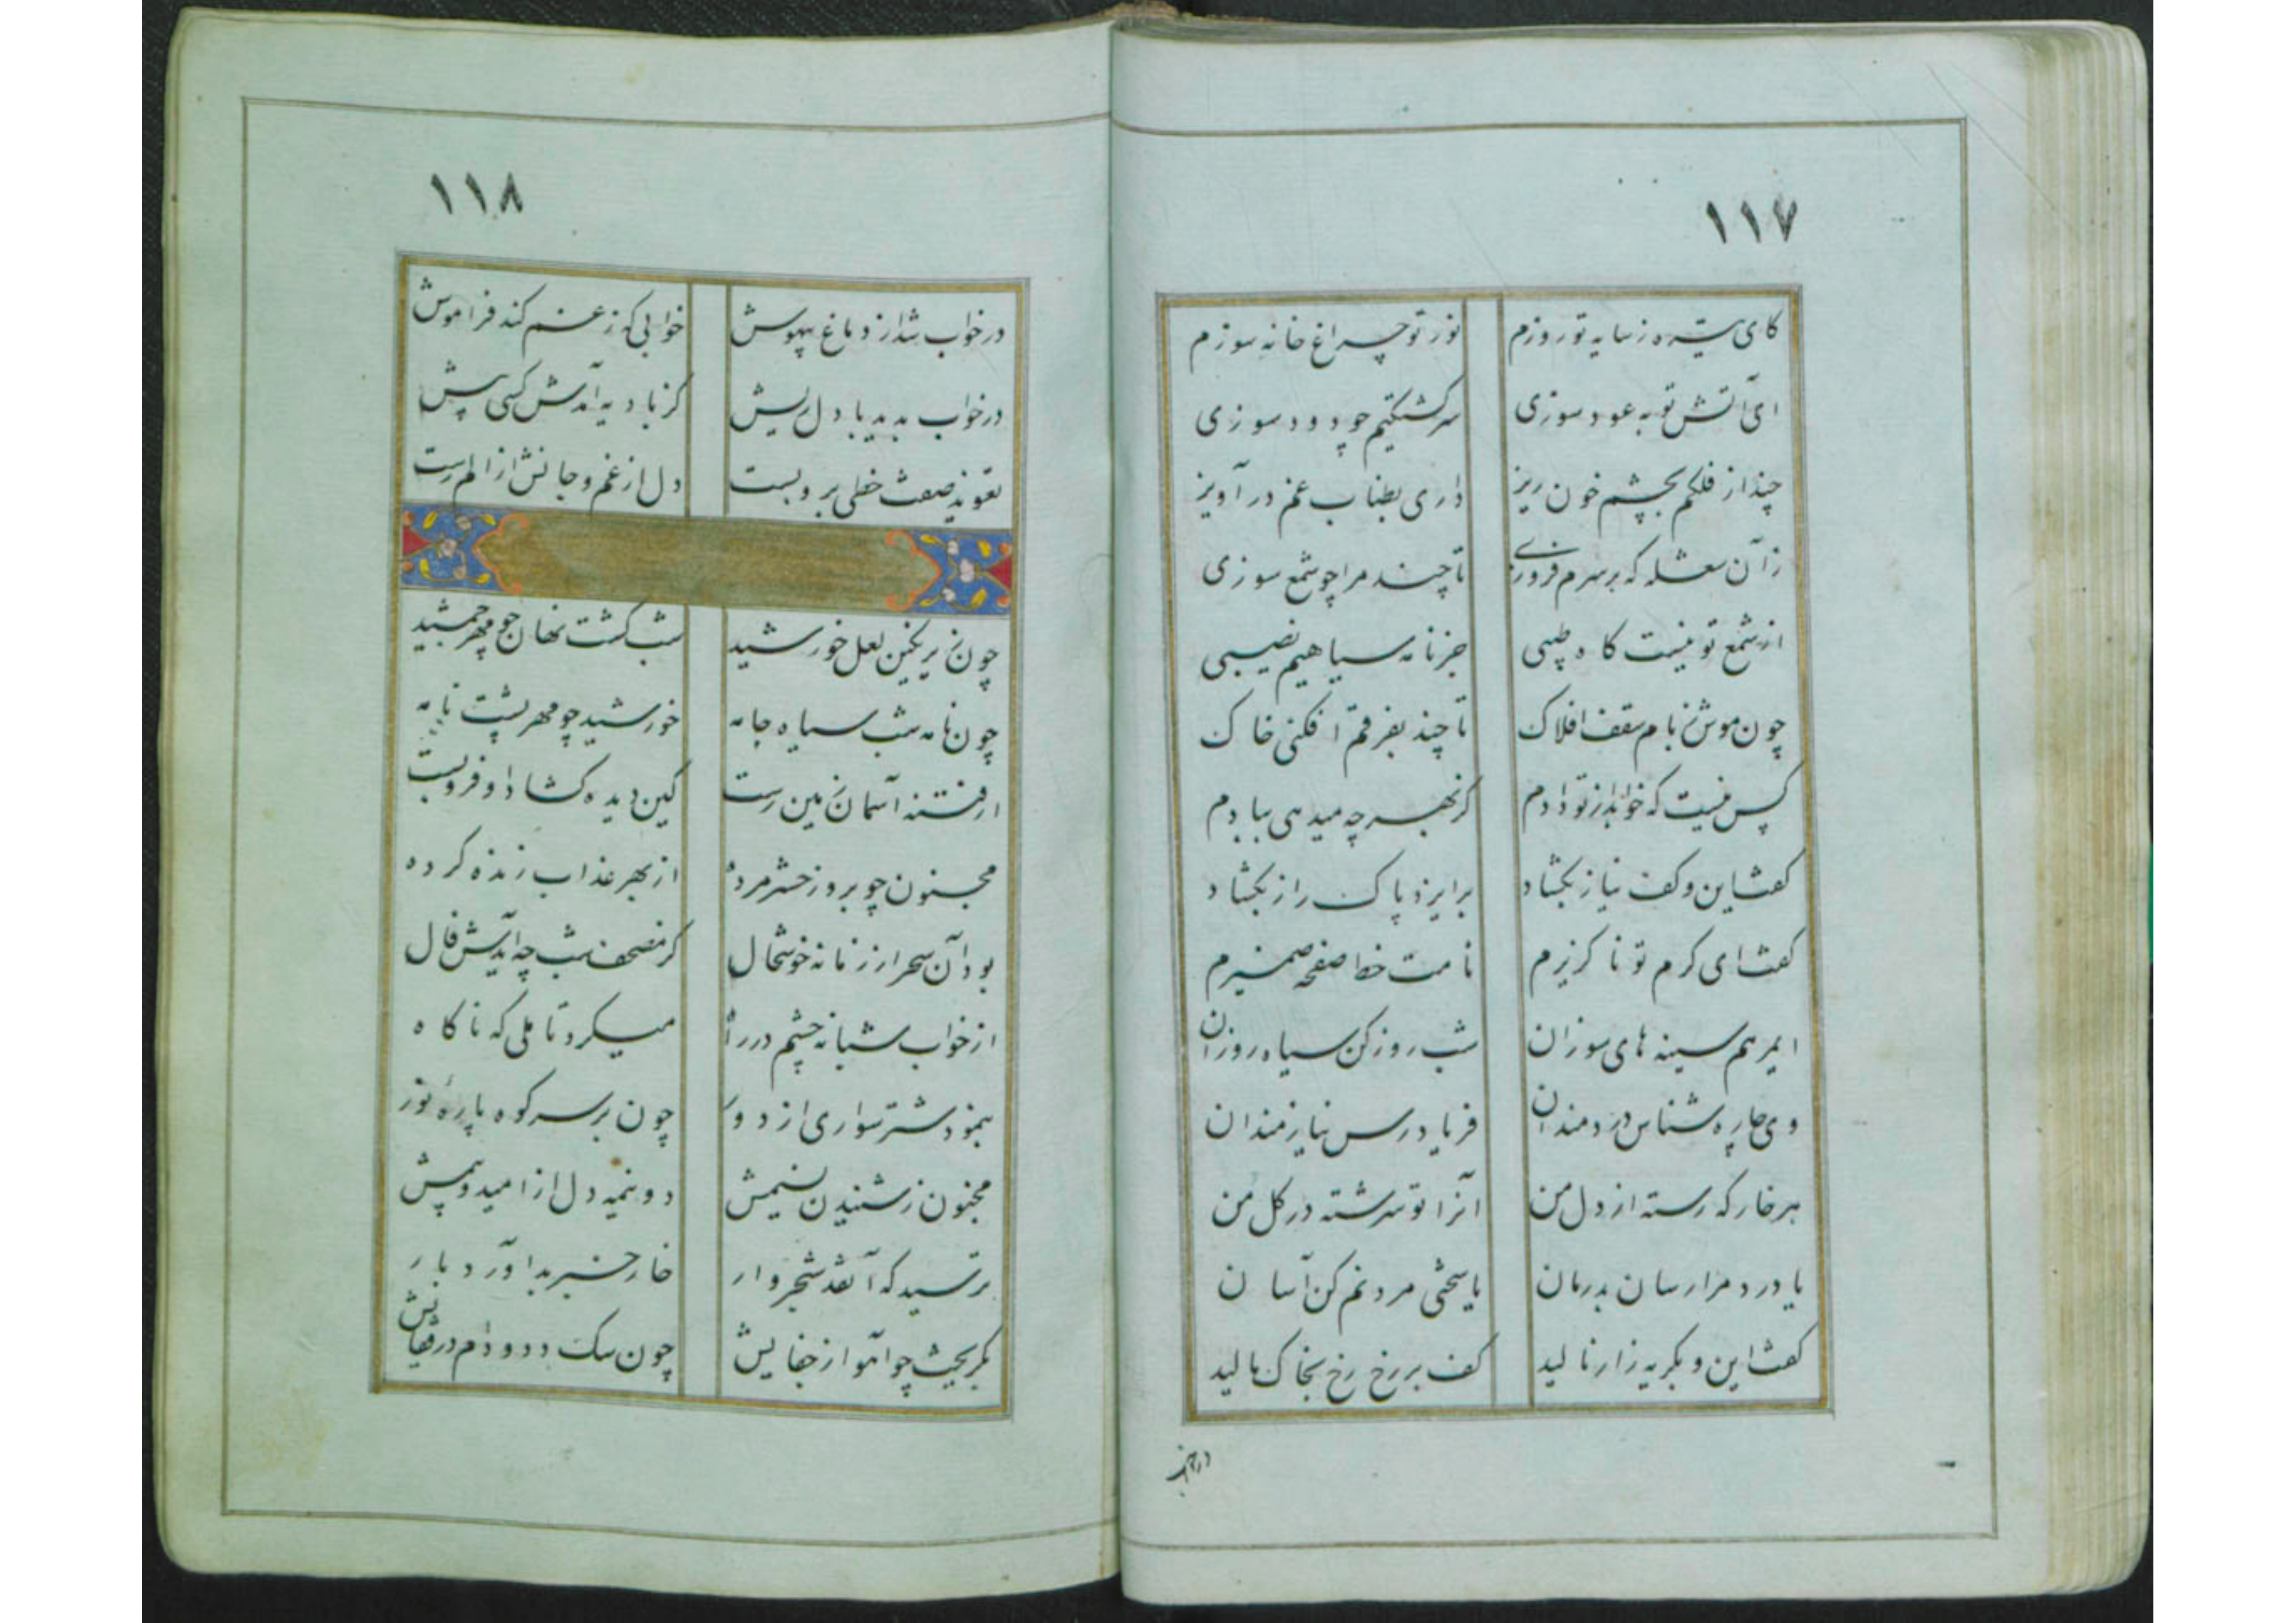 ١١٧
کای تیره ز سایه تو روزم نور تو چراغ خانه سوزم
ای آتش تو به عود سوزی سرگشتگیم چو دود سوزی
چند از فلکم بچشم خون ریز داری بطناب غم در آویز
زآن شعله که بر سرم فروزی تا چند مرا چو شمع سوزی
از شمع تو نیست کاه جز نامه سیاهیم نصیبی
چون موش ز بام سقف افلاک تا چند بفرقم افکنی خاک
پس نیست که خواند از تو دادم کز بهر چه میدهی ببادم
گفت این و کف نیاز بگشاد بر ایزد پاک راز بگشاد
گفت ای کرم تو ناگزیرم نامت خط صفحه ضمیرم
ای مرهم سینه های سوزان شب روز کن سیاه روزان
وی چاره شناس دردمندان فریاد رس نیازمندان
هر خار که رسته از دل من آنرا تو سرشته در گل من
یا درد مرا رسان بدرمان یا سختی مردنم کن آسان
گفت این و بگریه زار نالید کف بر رخ و رخ بخاک مالید
در خواب
١١٨
در خواب شد از دماغ بیهوش خوابی که ز غم کند فراموش
در خواب بدید با دل ریش کز بادیه آمدش کسی پیش
تعویذ صفت خطی برو بست دل از غم و جانش از الم رست
چون زیر نگین لعل خورشید شب گشت نهان چو مهر جمشید
چون نامه شب سیاه جامه خورشید چو مهر پشت نامه
از فتنه آسمان زمین رست کین دیده گشاد و او فرو بست
مجنون چو بروز حشر مرده از بهر عذاب زنده کرده
بود آن سحر از زمانه خوشحال کز مصحف شب چه آیدش فال
از خواب شبانه چشم در راه میکرد تاملی که ناگاه
بنمود شتر سواری از دور چون بر سر کوه پاره نور
مجنون ز شنیدن نسیمش دو نیمه دل از امید و بیمش
ترسید که آنقد شجر وار خار خبر بد آورد بار
بگریخت چو آهو از جفایش چون سگ دد و دام در قفایش